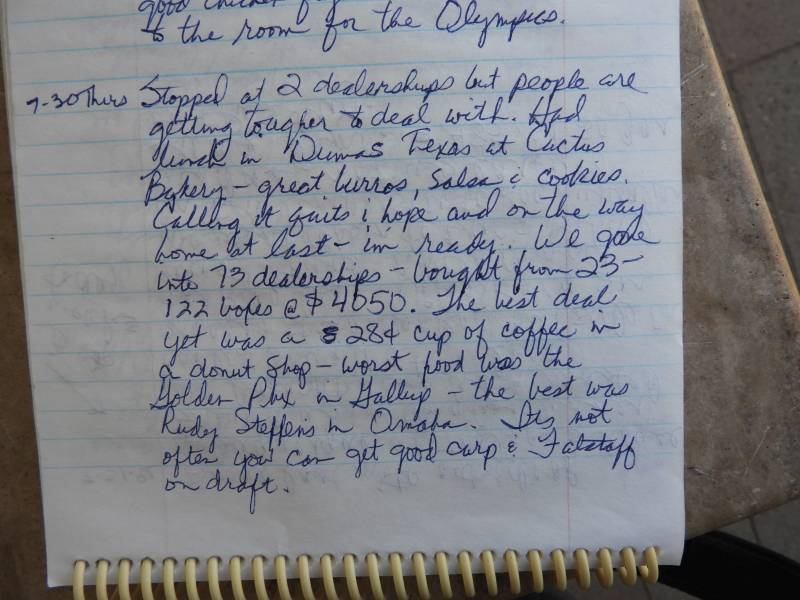 good chicken
to the room for the Olympics.
7-30 Thurs Stopped at 2 dealerships but people are
getting tougher to deal with. Had
lunch in Dumas Texas at Cactus
Bakery - great burros, salsa & cookies.
Calling it quits i hope and on the way
home at last - im ready. We gone
into 73 dealerships - bought from 23 -
122 boxes @ $4050. The best deal
yet was a 28¢ cup of coffee in
a donut shop - worst food was the
Golden Phx in Gallup - the best was
Rudy Steffens in Omaha. Its not
often you can get good carp & Falstaff
on draft.